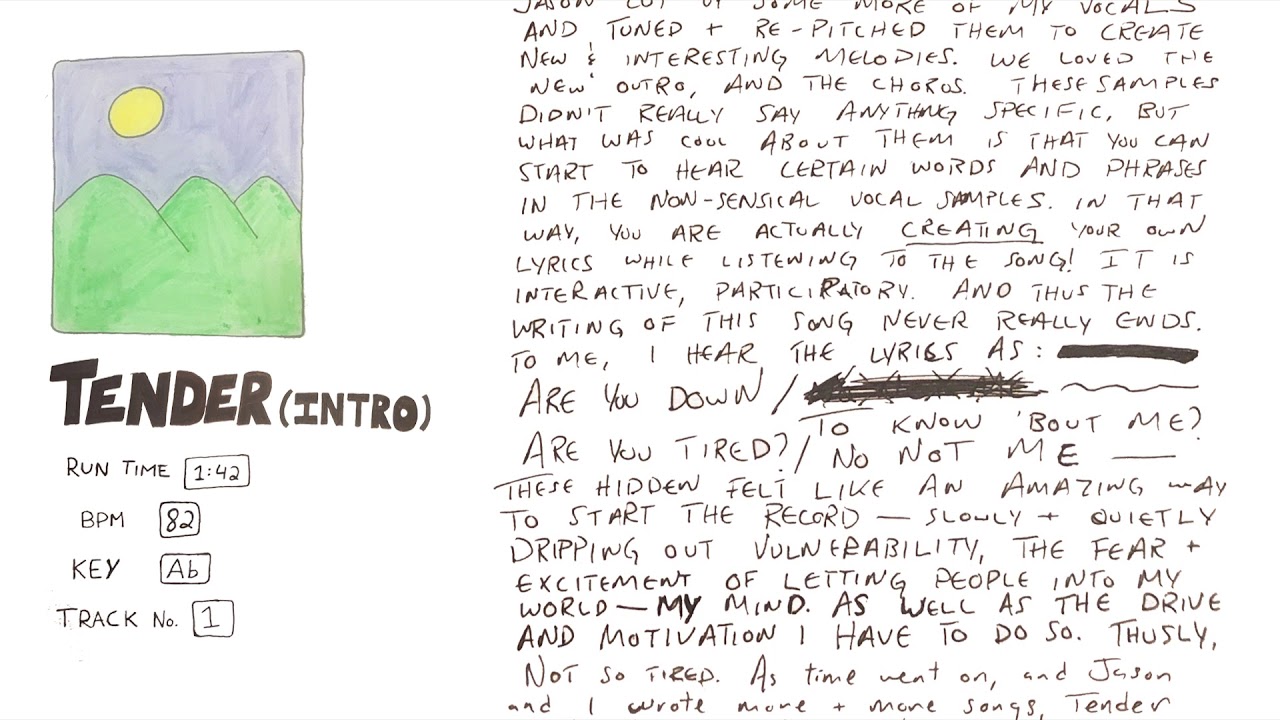 TENDER (INTRO)
RUN TIME 1:42
BPM 82
KEY Ab
TRACK No. 1
JASON CUT UP SOME MORE OF MY VOCALS
AND TUNED + RE-PITCHED THEM TO CREATE
NEW & INTERESTING MELODIES. WE LOVED THE
NEW OUTRO, AND THE CHORUS. THESE SAMPLES
DIDN'T REALLY SAY ANYTHNG SPECIFIC, BUT
WHAT WAS COOL ABOUT THEM IS THAT YOU CAN
START TO HEAR CERTAIN WORDS AND PHRASES
IN THE NON-SENSICAL VOCAL SAMPLES. IN THAT
WAY, YOU ARE ACTUALLY CREATING YOUR OWN
LYRICS WHILE LISTENING TO THE SONG! IT IS
INTERACTIVE, PARTICIPATORY. AND THUS THE
WRITING OF THIS SONG NEVER REALLY ENDS.
TO ME, I HEAR THE LYRICS AS:
ARE YOU DOWN /
TO KNOW 'BOUT ME?
ARE YOU TIRED? / NO NOT ME —
THESE HIDDEN FELT LIKE AN AMAZING WAY
TO START THE RECORD — SLOWLY + QUIETLY
DRIPPING OUT VULNERABILITY, THE FEAR +
EXCITEMENT OF LETTING PEOPLE INTO MY
WORLD — MY MIND. AS WELL AS THE DRIVE
AND MOTIVATION I HAVE TO DO SO. THUSLY,
NOT SO TIRED. As time went on, and Jason
and I wrote more + more songs, Tender